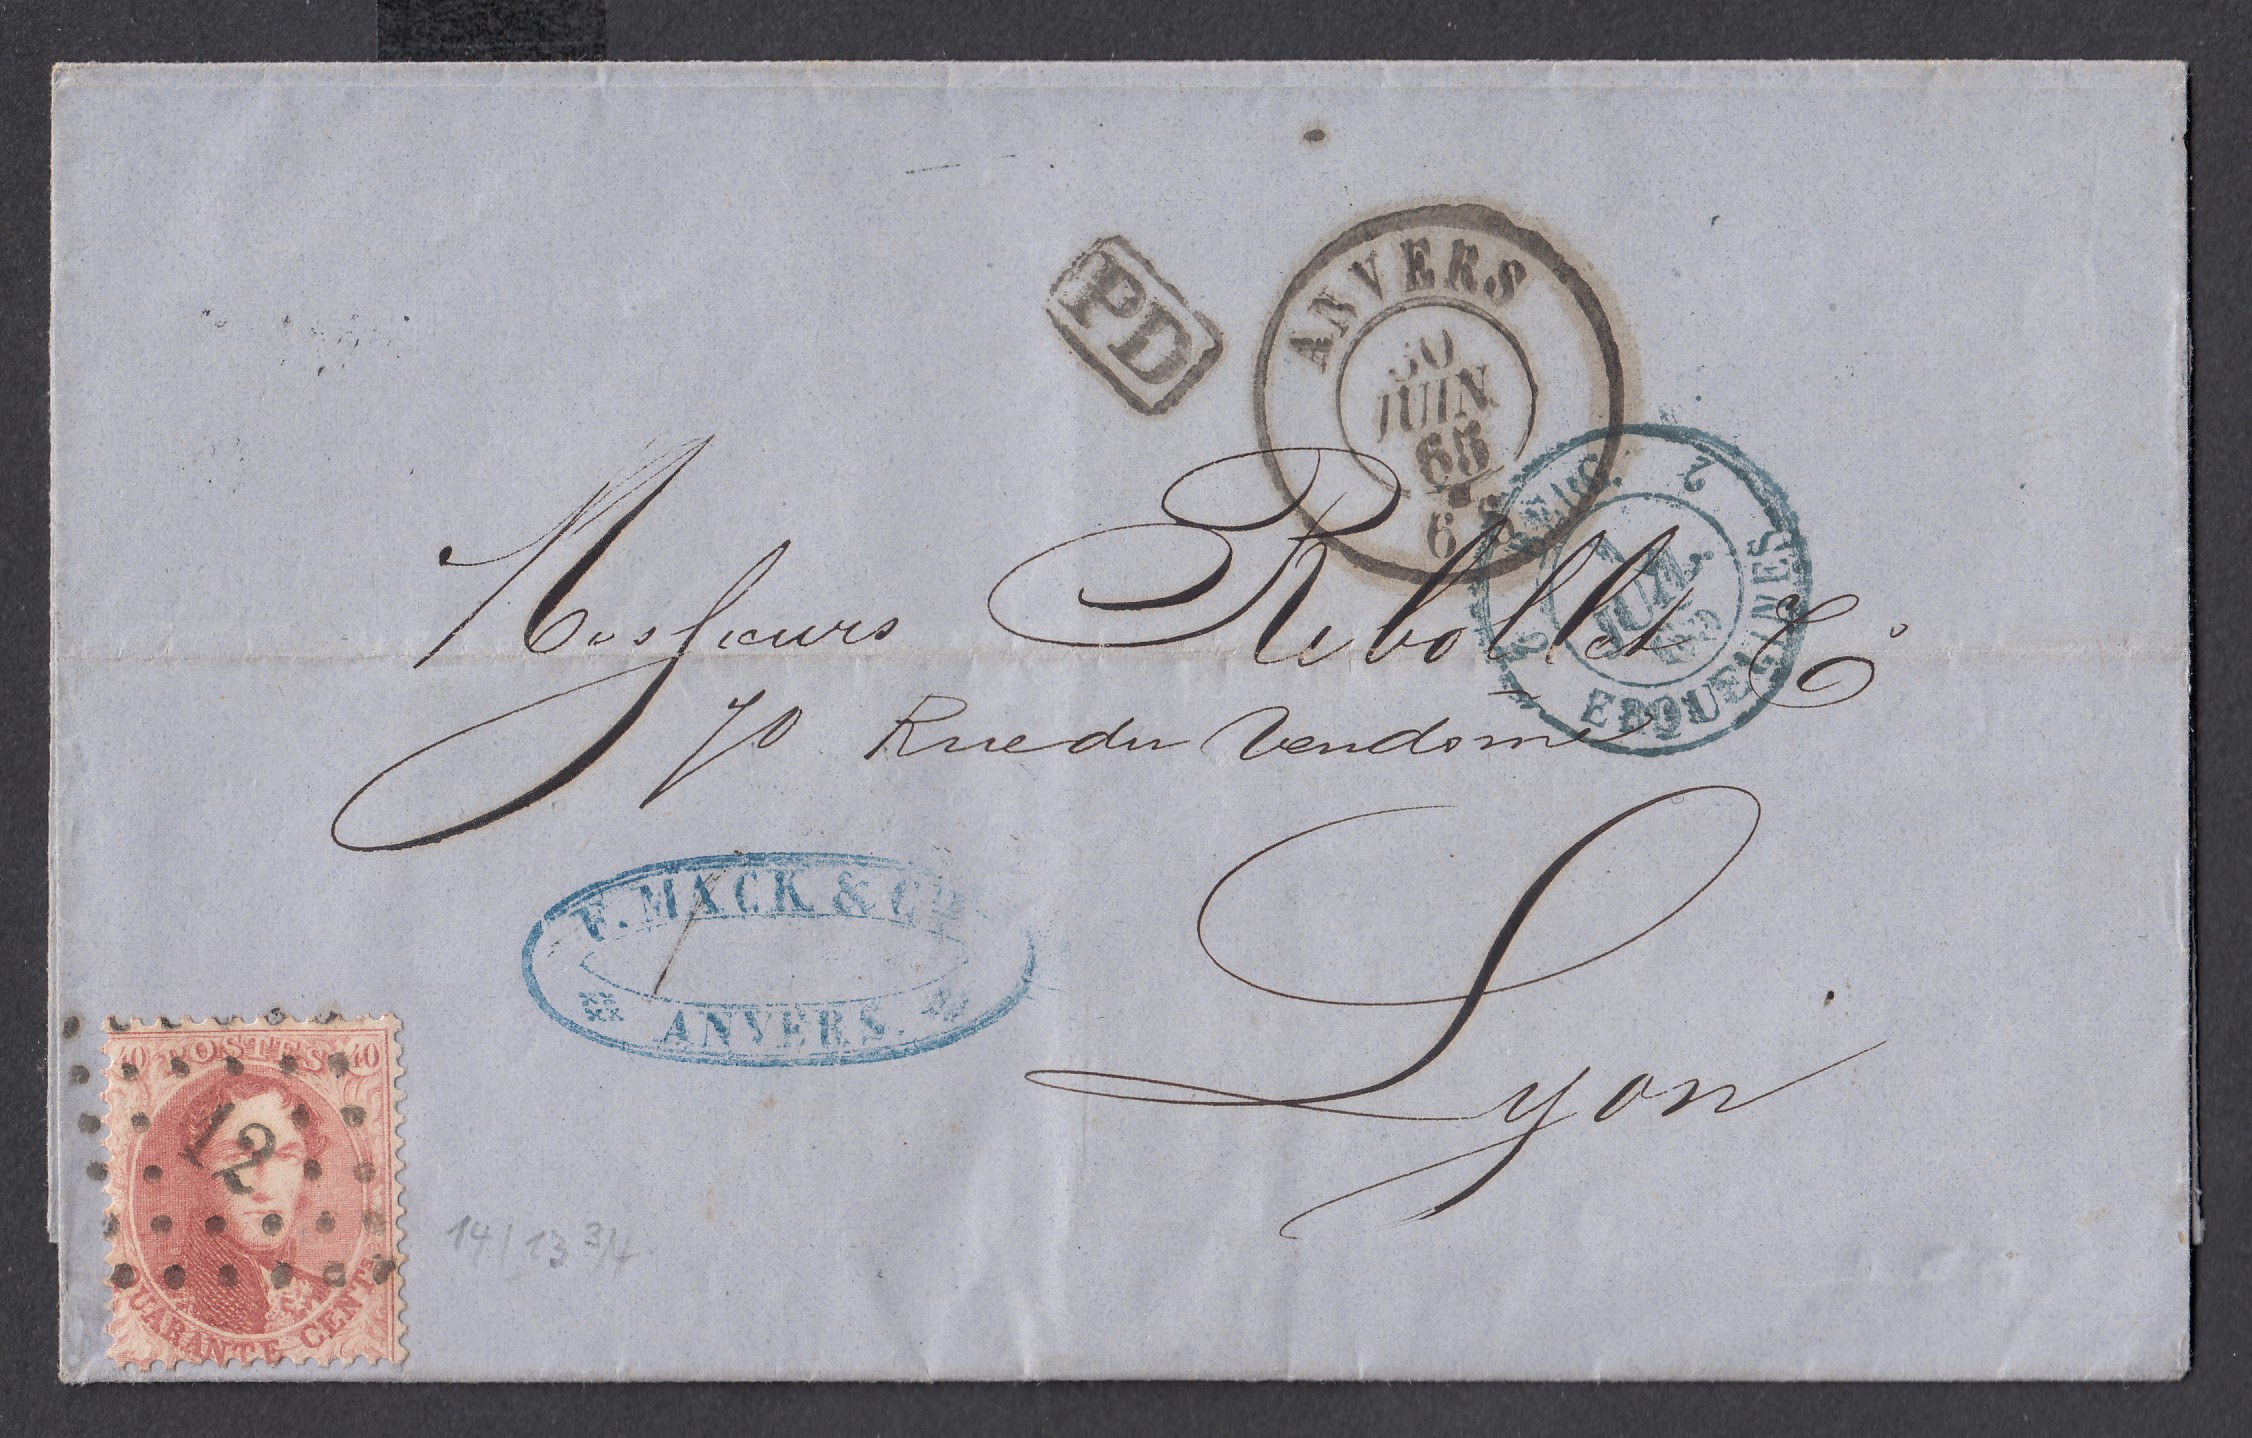 PD
ANVERS
30
JUIN
65
6 S
BELG. 2
1
JUIL.
65
ERQUELINES 2
Messieurs Rebollet & Co
70 Rue du Vendome
Lyon
F. MACK & CIE
ANVERS.
40 POSTES 40
12
QUARANTE CENTS
14 / 13 3/4